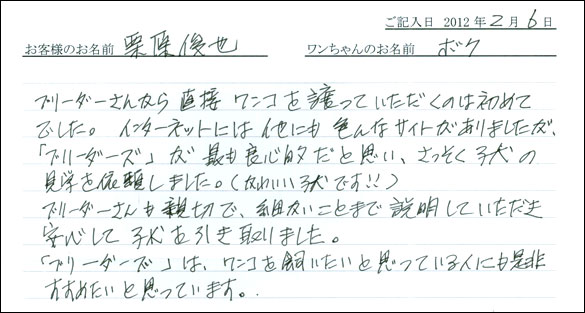 ご記入日 2012年2月6日
お客様のお名前 栗原俊也 ワンちゃんのお名前 ボク
ブリーダーさんから直接ワンコを譲っていただくのは初めて
でした。インターネットには他にも色んなサイトがありましたが、
「ブリーダーズ」が最も良心的だと思い、さっそく子犬の
見学を依頼しました。(かわいい子犬です!!)
ブリーダーさんも親切で、細かいことまで説明していただき
安心して子犬を引き取りました。
「ブリーダーズ」は、ワンコを飼いたいと思っている人にも是非
すすめたいと思っています。